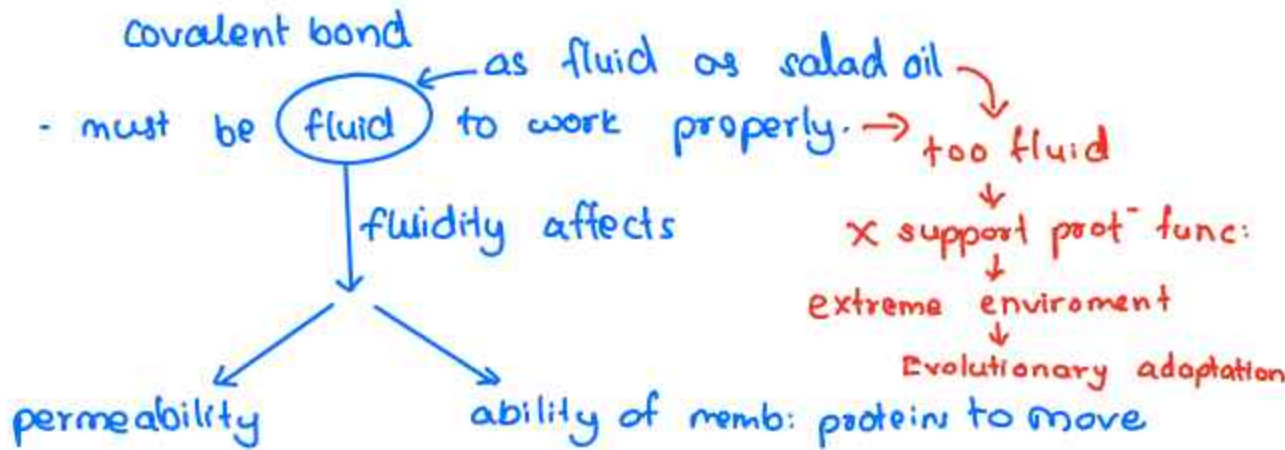 covalent bond
as fluid as salad oil
- must be fluid to work properly. → too fluid
fluidity affects
x support prot⁻ func:
extreme enviroment
Evolutionary adaptation
permeability
ability of memb: proteins to move